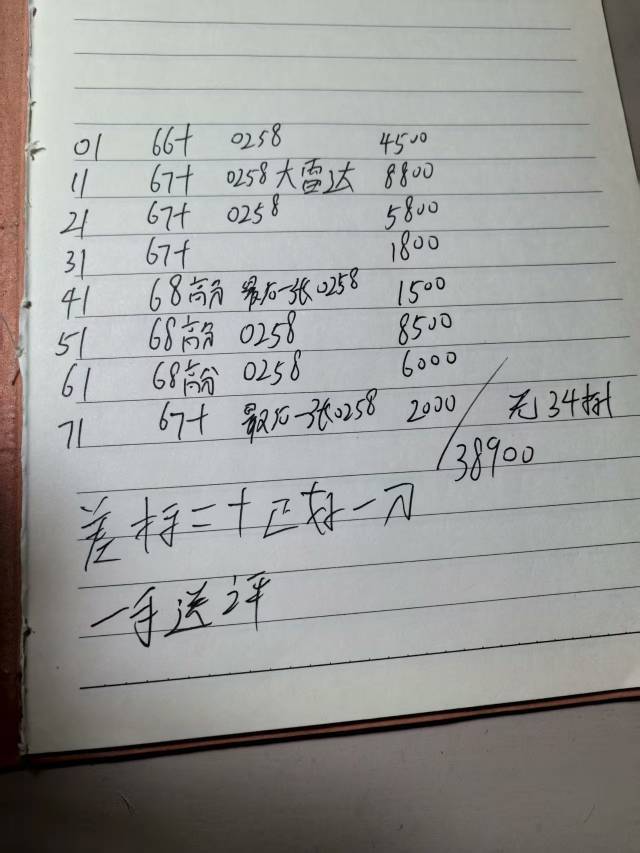 01 66+ 0258 4500
11 67+ 0258大雷达 8800
21 67+ 0258 5800
31 67+ 1800
41 68高分 最后一张0258 1500
51 68高分 0258 8500
61 68高分 0258 6000
71 67+ 最后一张0258 2000 / 无34标
38900
差标二十正好一刀
一手送评